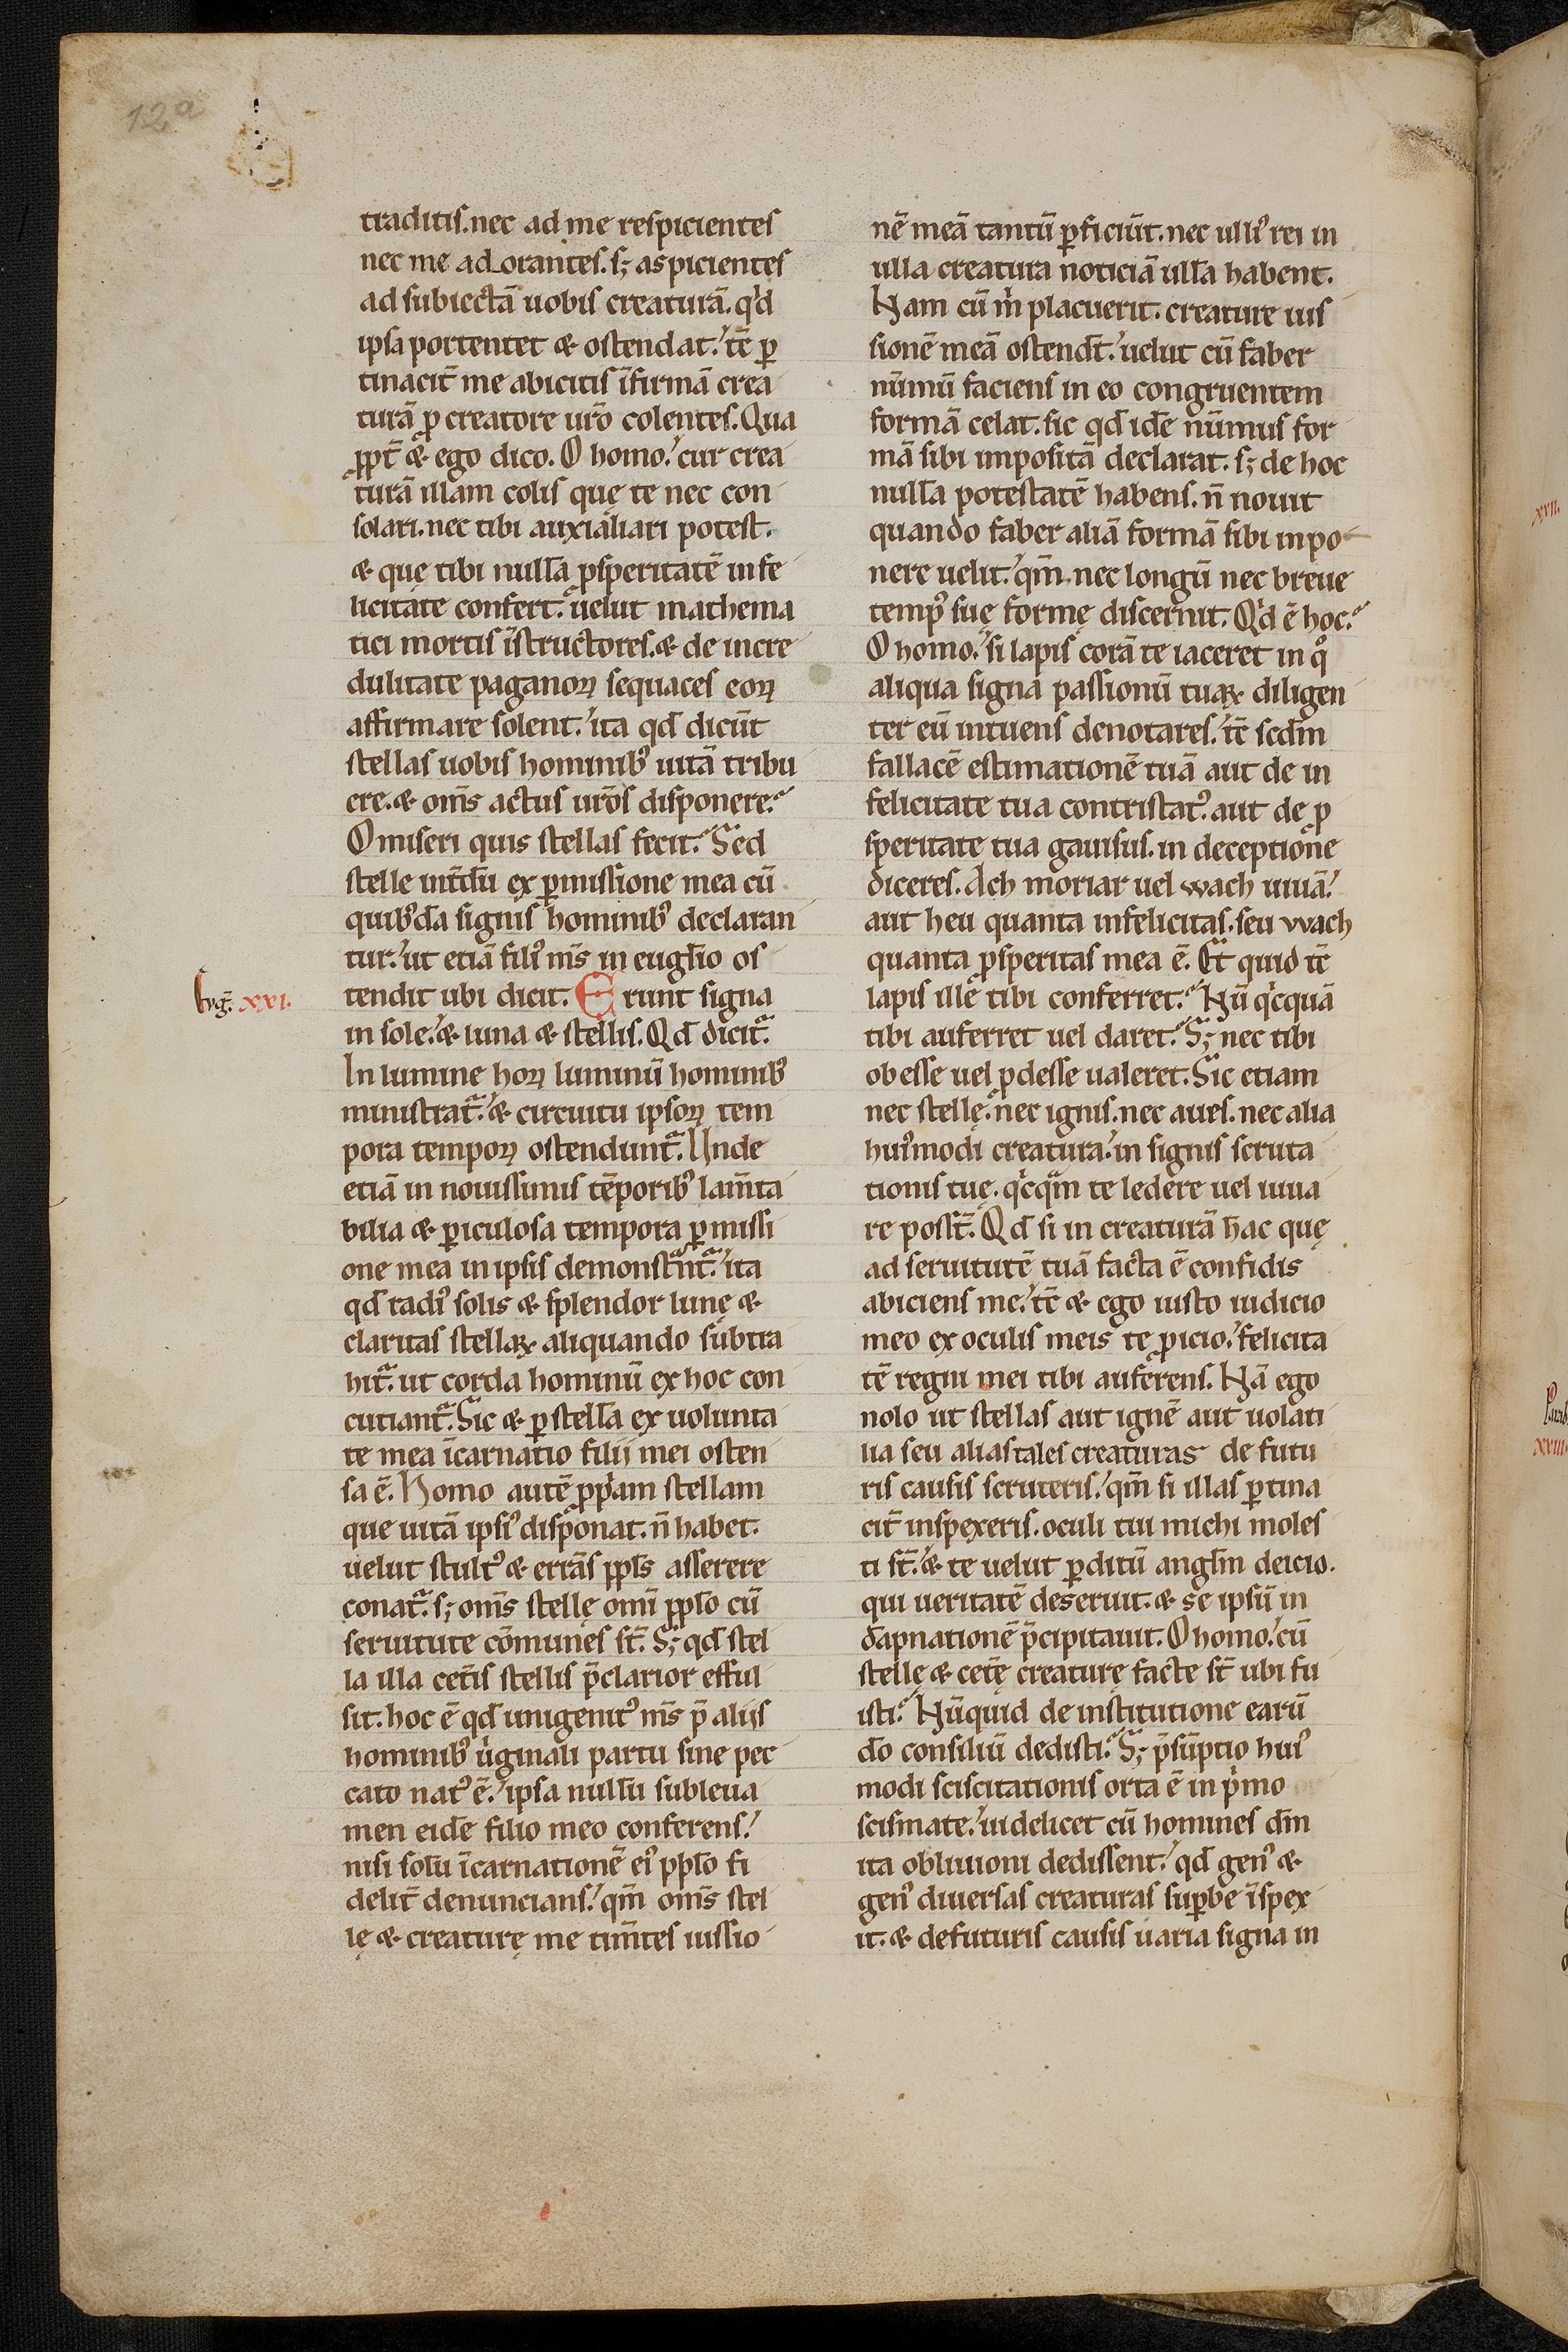 12a
traditis. nec ad me respicientes
nec me adorantes. s; aspicientes
ad subiectā uobis creaturā. qͥd
ipsa portentet ⁊ ostendat. tc̄ ꝑ
tinacit̄ me abicitis īfirmā crea
turā ꝓ creatore ur̄o colentes. Qua
ꝓpt̄ ⁊ ego dico. O homo. cur crea
turā illam colis que te nec con
solari. nec tibi auxialiari potest.
⁊ quę tibi nullā ꝓsperitatē in fe
licitate confert. uelut mathema
tici mortis īstructores. ⁊ de incre
dulitate paganoꝝ sequaces eoꝝ
affirmare solent. ita qd̄ dicūt
stellas uobis hominibꝰ uitā tribu
ere. ⁊ om̄s actus ur̄os disponere.
O miseri quis stellas fecit. Sed
stelle int̄dū ex ꝑmissione mea cū
quibꝰdā signis hominibꝰ declaran
tur. ut etiā filiꝰ m̄s in eugl̄io os
tendit ubi dicit. Erunt signa
Evḡ. xxi.
in sole. ⁊ luna ⁊ stellis. Qd̄ dicit᷑.
In lumine hoꝝ luminū hominibꝰ
ministrat᷑. ⁊ circuitu ipsoꝝ tem
pora tempoꝝ ostendunt᷑. Unde
etiā in nouissimis tēporibꝰ lam̄ta
bilia ⁊ ꝑiculosa tempora ꝑmissi
one mea in ipsis demonstᵃnt᷑. ita
qd̄ radiꝰ solis ⁊ splendor lunę ⁊
claritas stellaꝝ aliquando subtra
hit᷑. ut corda hominū ex hoc con
cutiant᷑. Sic ⁊ ꝑ stellā ex uolunta
te mea īcarnatio filii mei osten
sa ē. Homo autē ꝓpͥam stellam
que uitā ipsiꝰ disponat. n̄ habet.
uelut stultꝰ ⁊ errās ppl̄s asserere
conat᷑. s; om̄s stellę omī ppl̄o cū
seruitute cōmunes st̄. S; qd̄ stel
la illa cet̄is stellis p̄clarior efful
sit. hoc ē qd̄ unigenitꝰ m̄s p̄ aliis
hominibꝰ uͥginali partu sine pec
cato natꝰ ē. ipsa nullū subleua
men eidē filio meo conferens.
nisi solū īcarnationē eiꝰ ppl̄o fi
delit̄ denuncians. qm̄ om̄s stel
lę ⁊ creaturę me tim̄tes iussio
nē meā tantū ꝑficiūt. nec ulliꝰ rei in
ulla creatura noticiā ullā habent.
Nam cū mͥ placuerit. creature ius
sionē meā ostendt̄. uelut cū faber
nūmū faciens in eo congruentem
formā celat. sic qd̄ idē nūmus for
mā sibi impositā declarat. s; de hoc
nullā potestatē habens. n̄ nouit
quando faber aliā formā sibi inpo
nere uelit. qm̄ nec longū nec breue
tempꝰ suę formę discernit. Qͥd ē hoc.
O homo. si lapis corā te iaceret in qͦ
aliqua signa passionū tuaꝝ diligen
ter eū intuens denotares. tc̄ scdm̄
fallacē estimationē tuā aut de in
felicitate tua contristatꝰ. aut de ꝓ
speritate tua gauisus. in deceptione
diceres. Ach moriar uel wach uiuā.
aut heu quanta infelicitas. seu wach
quanta ꝓsperitas mea ē. Et quid tc̄
lapis ille tibi conferret. Nū qͥcquā
tibi auferret uel daret. S; nec tibi
obesse uel ꝓdesse ualeret. Sic etiam
nec stellę. nec ignis. nec aues. nec alia
huiꝰmodi creatura. in signis scruta
tionis tuę. qͥcqᵃm te ledere uel iuua
re posst̄. Qd̄ si in creaturā hac quę
ad seruitutē tuā facta ē confidis
abiciens me. tc̄ ⁊ ego iusto iudicio
meo ex oculis meis te ꝓicio. felicita
tē regni mei tibi auferens. Nā ego
nolo ut stellas aut ignē aut uolati
lia seu alias tales creaturas de futu
ris causis scruteris. qm̄ si illas ꝑtina
cit̄ inspexeris. oculi tui michi moles
ti st̄. ⁊ te uelut ꝑditū anglm̄ deicio.
qui ueritatē deseruit. ⁊ se ipsū in
dāpnationē p̄cipitauit. O homo. cū
stellę ⁊ cet̄ę creaturę facte st̄ ubi fu
isti. Nūquid de institutione earū
dō consiliū dedisti. S; p̄sūptio huiꝰ
modi sciscitationis orta ē in pͥmo
scismate. uidelicet cū homines dm̄
ita obliuioni dedissent. qd̄ genꝰ ⁊
genꝰ diuersas creaturas suꝑbe īspex
it. ⁊ de futuris causis uaria signa in
xvii.
xviii.